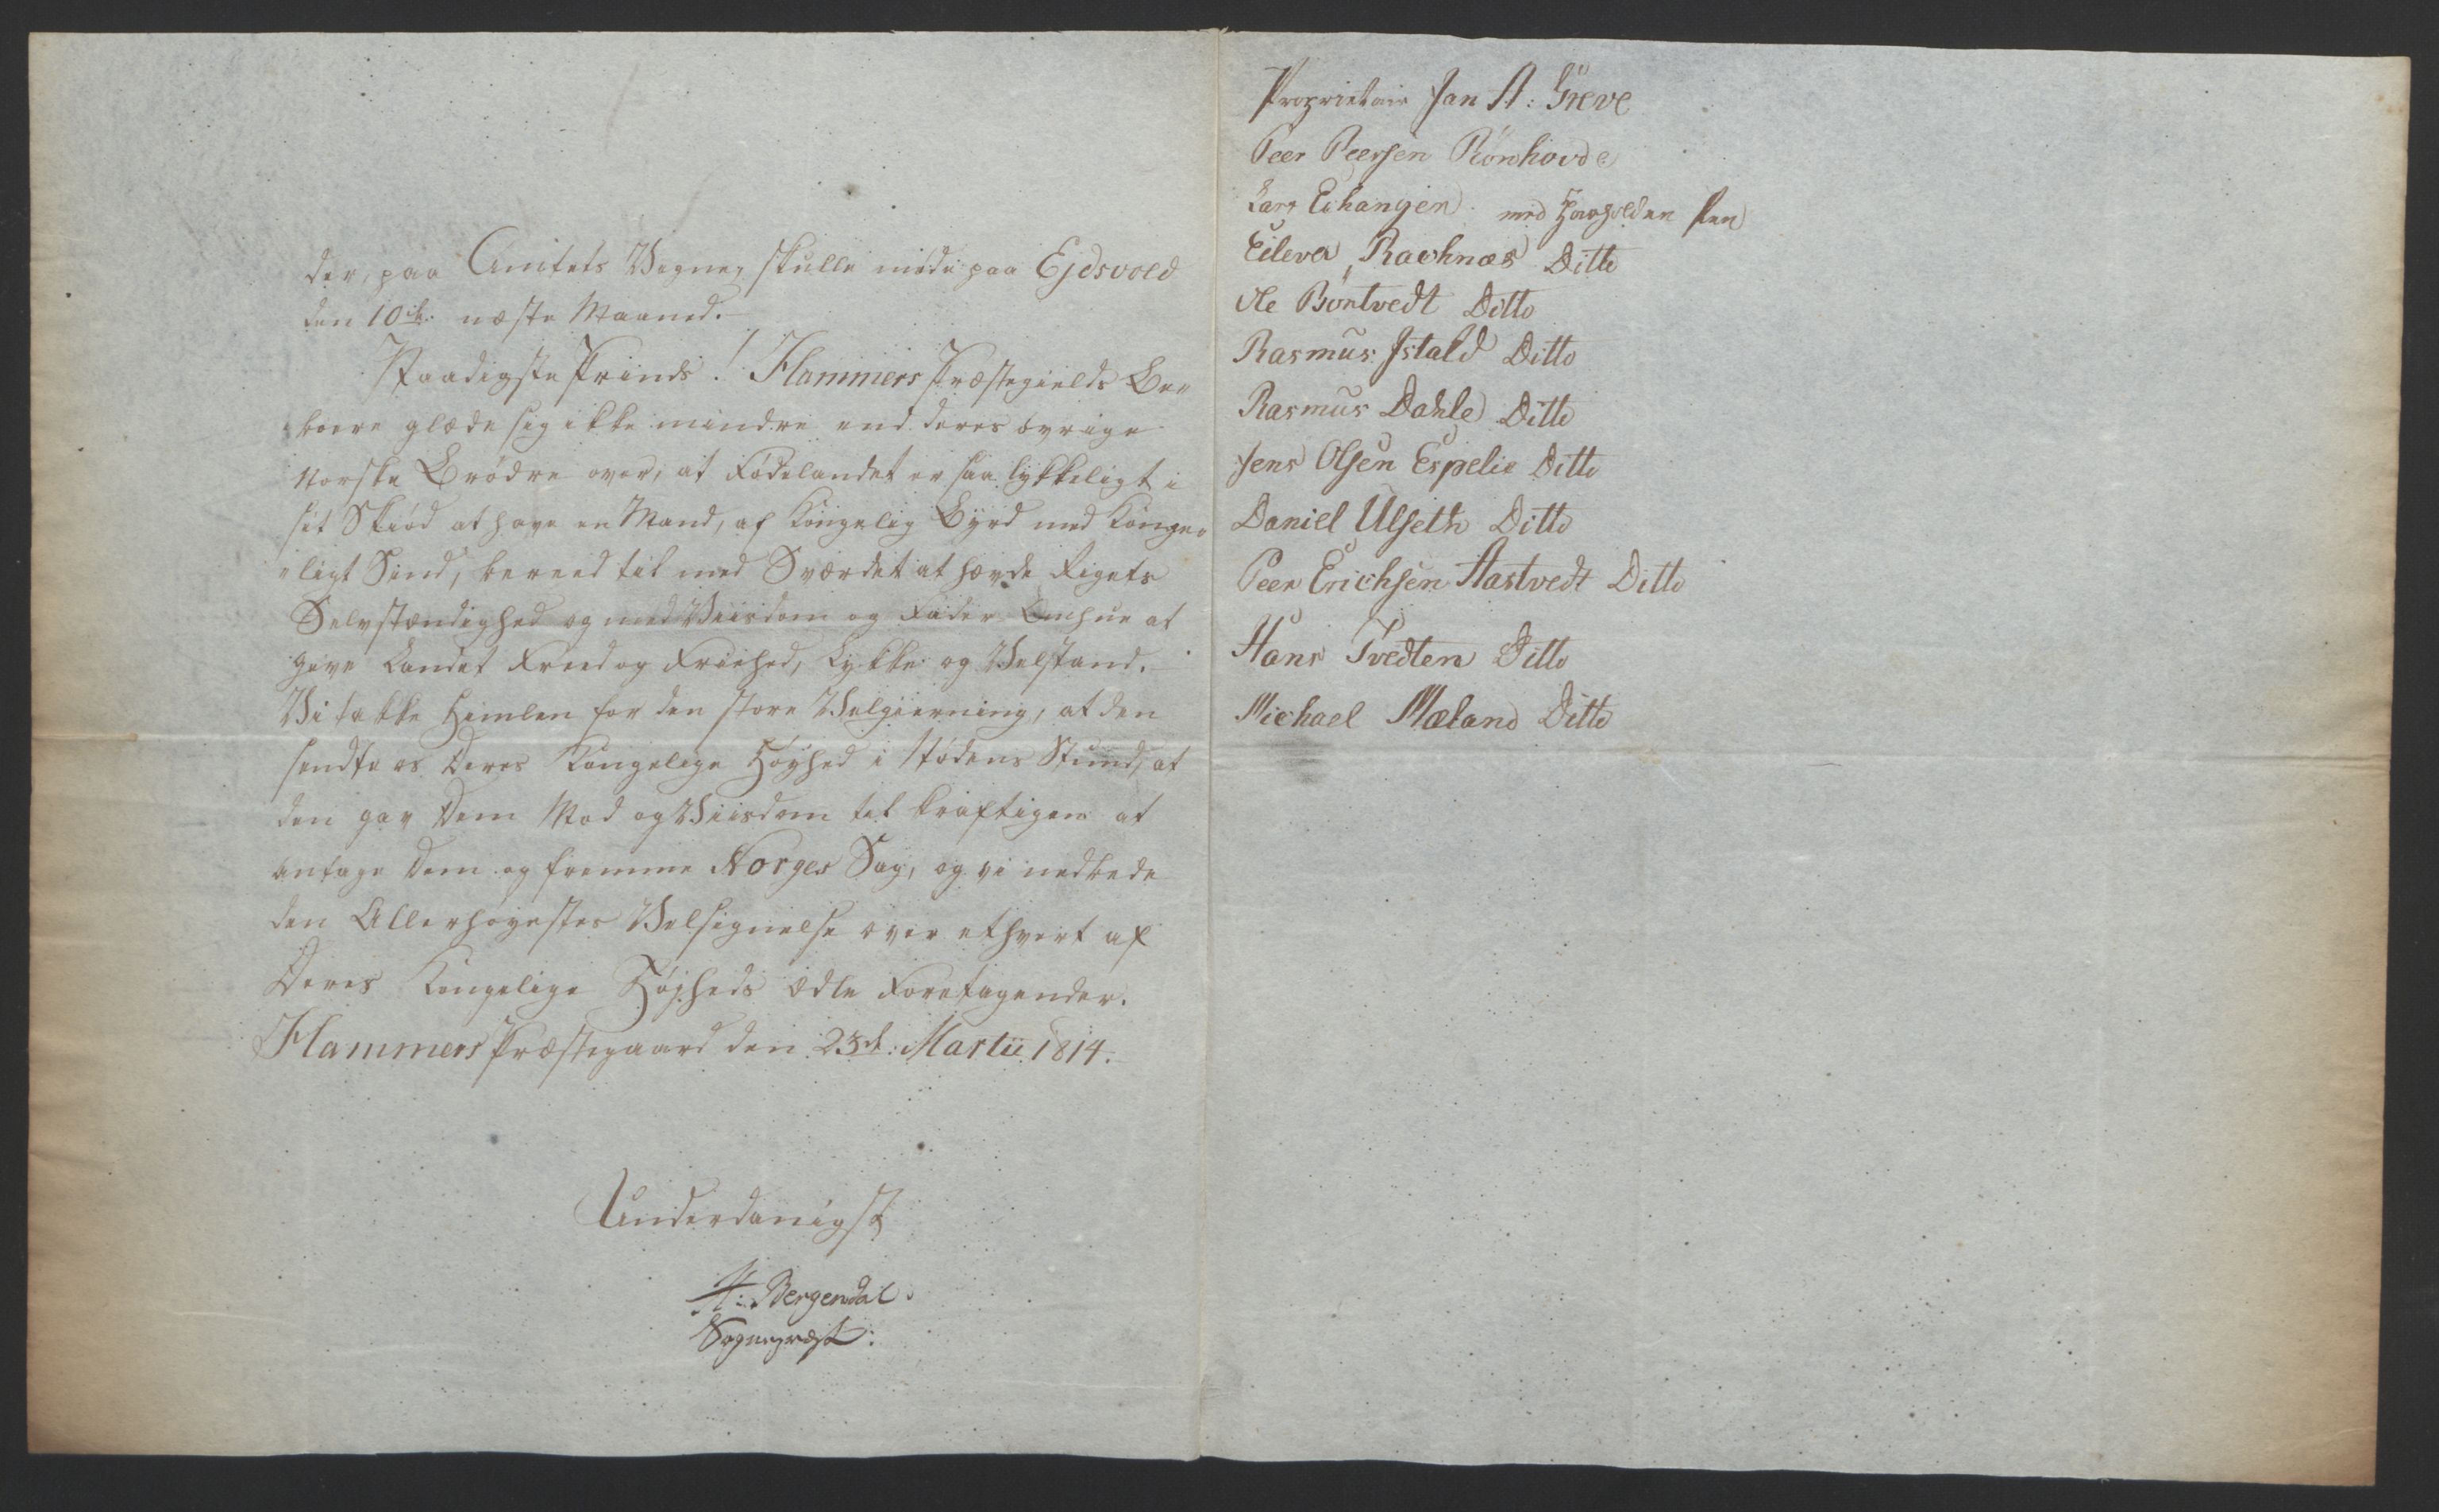 der, paa Amtets Vegne, skulle møde paa Ejdsvold
den 10de næste Maaned.
Naadigste Prinds! Hammers Præstegields Be=
boere glæde sig ikke mindre end deres övrige
Norske Brödre over, at Födelandet er saa lykkeligt i
sit Skiöd at have en Mand, af Kongelig Byrd med Konge=
=ligt Sind, bereed til med Sværdet at hævde Rigets
Selvstændighed og med Viisdom og Fader Omhue at
give Landet Fred og Friehed, Lykke og Velstand.
Vi takke Himlen for den store Velgierning, at den
sendte os Deres Kongelige Höyhed i Nödens Stund, at
den gav Dem Mod og Viisdom til kraftigen at
antage Dem og fremme Norges Sag, og vi nedbede
den Allerhöyestes Velsignelse over ethvert af
Deres Kongelige Höjheds ædle Foretagender.
Hammers Præstegaard den 23d: Martii 1814.
Underdanigst
A: Bergendal.
Sognepræst:
Proprietair Jan A: Greve
Peer Peersen Rönhovde
Lars Echangen med paaholden Pen
Eilevn Ravhnæs Ditto
Ole Börtvedt Ditto
Rasmus Istald Ditto
Rasmus Dahle Ditto
Jens Olsen Espelie Ditto
Daniel Ulseth Ditto
Peer Erichsen Aastvedt Ditto
Hans Tvedten Ditto
Michael Mæland Ditto